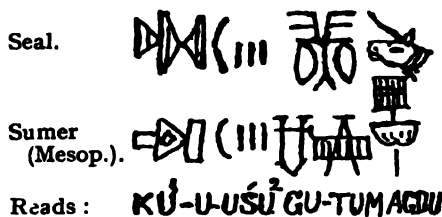 Seal.
Sumer
(Mesop.).
Reads: KU³-U-UŚU² GU-TUM AGDU